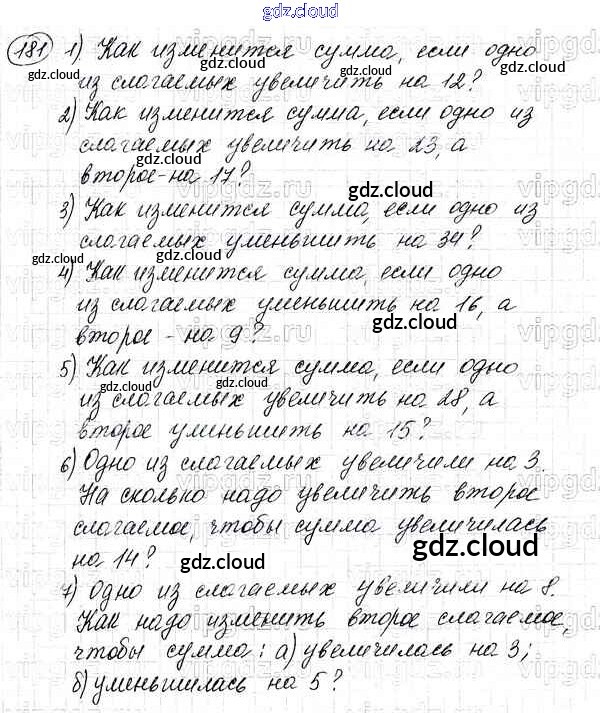 gdz.cloud
181 1) Как изменится сумма, если одно
из слагаемых увеличить на 12?
2) Как изменится сумма, если одно из
слагаемых увеличить на 23, а
второе - на 17?
3) Как изменится сумма, если одно из
слагаемых уменьшить на 34?
4) Как изменится сумма, если одно
из слагаемых уменьшить на 16, а
второе - на 9?
5) Как изменится сумма, если одно
из слагаемых увеличить на 28, а
второе уменьшить на 15?
6) Одно из слагаемых увеличили на 3.
На сколько надо увеличить второе
слагаемое, чтобы сумма увеличилась
на 14?
7) Одно из слагаемых увеличили на 8.
Как надо изменить второе слагаемое,
чтобы сумма: а) увеличилась на 3;
б) уменьшилась на 5?